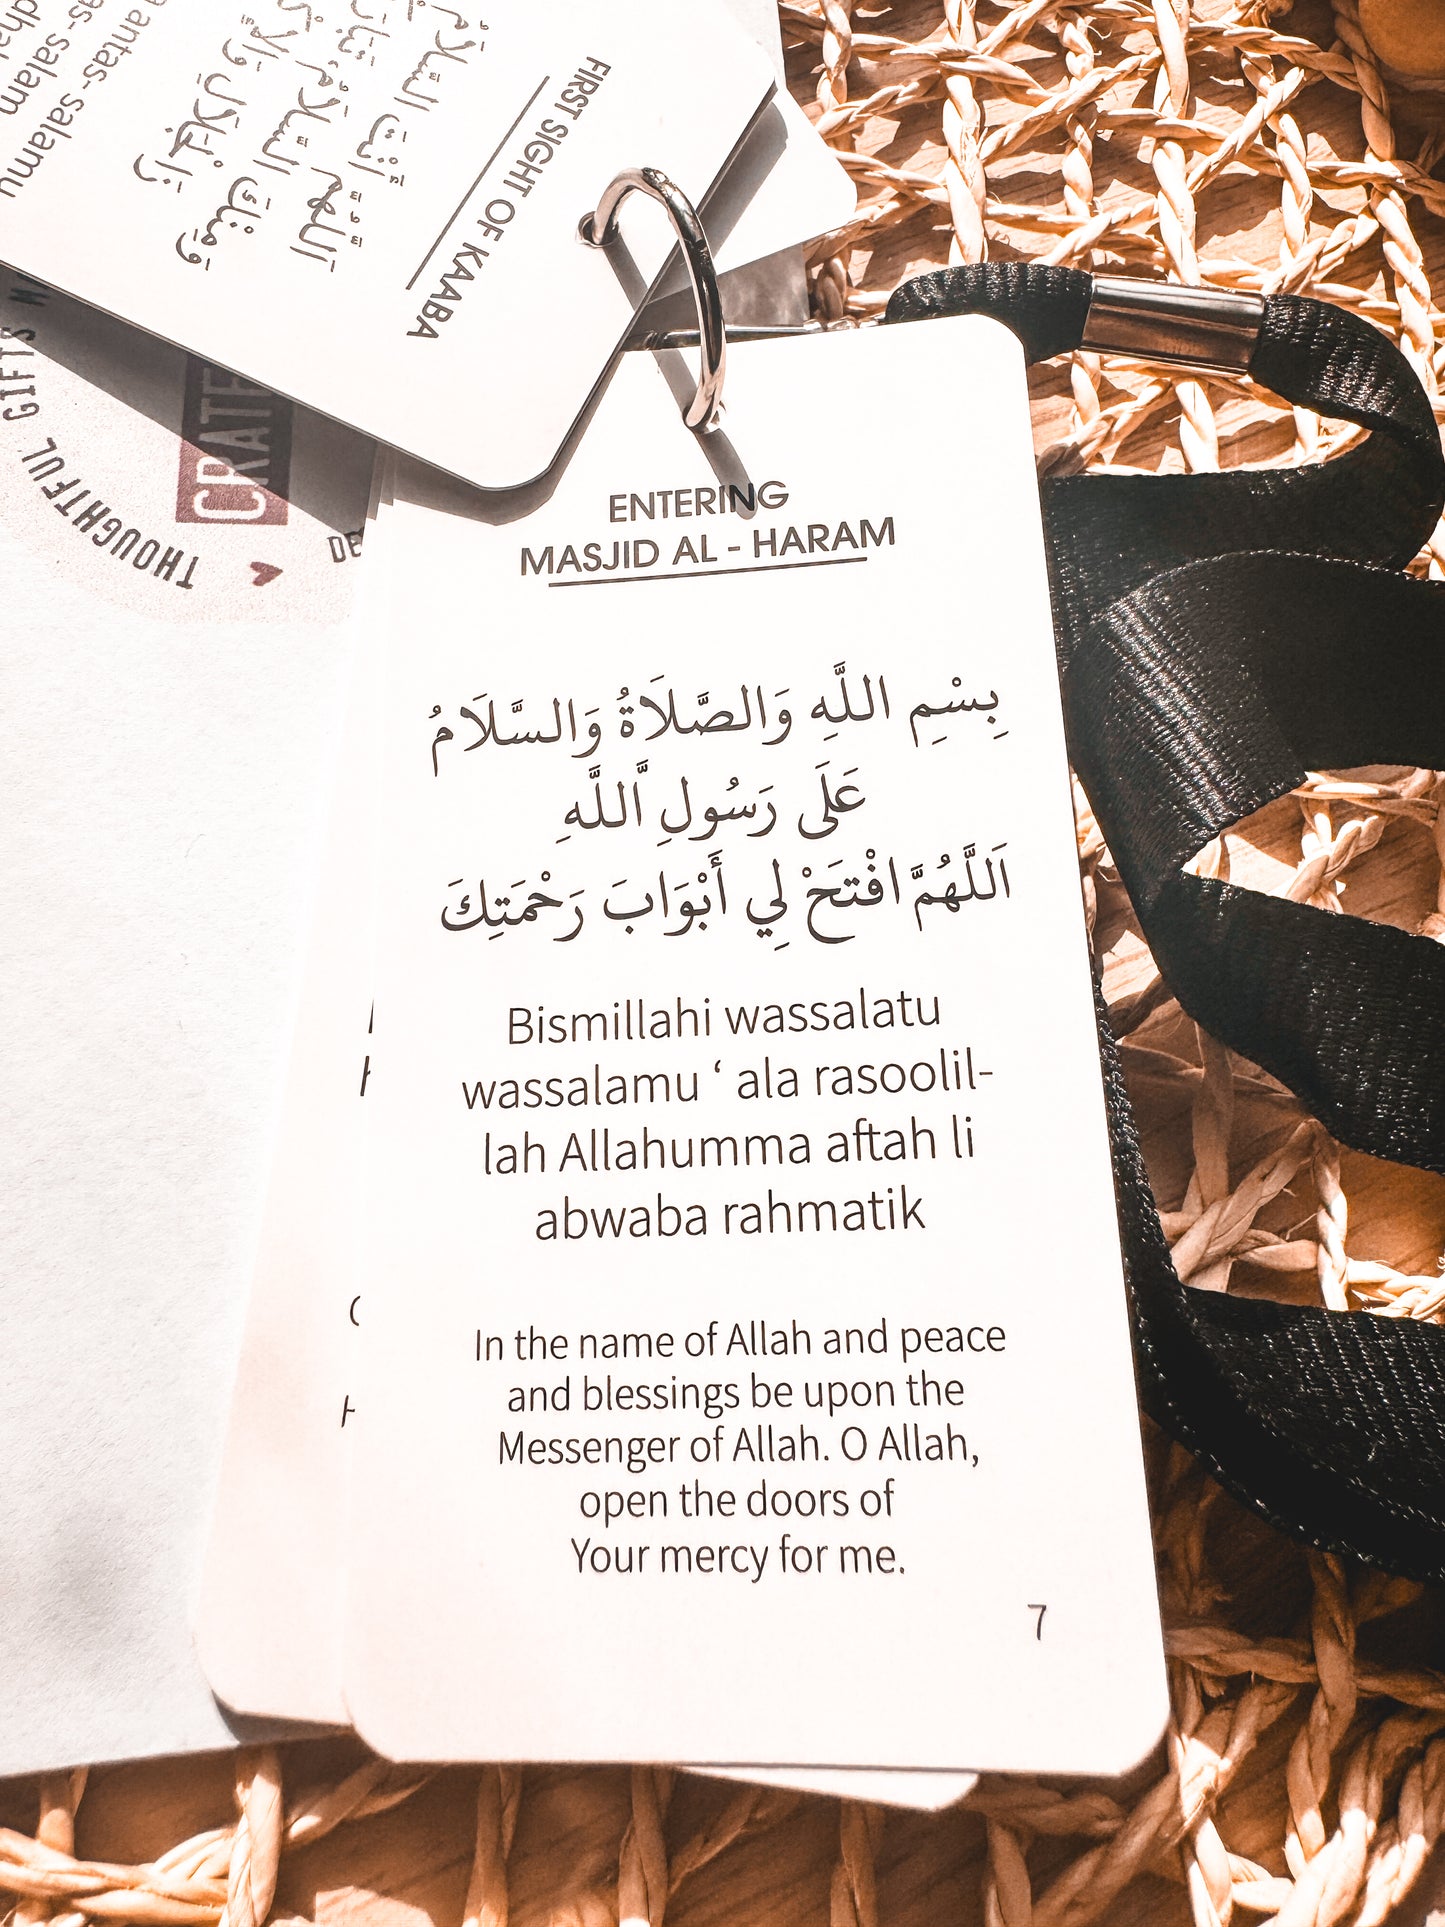 FIRST SIGHT OF KAABA
اَللَّهُمَّ أَنْتَ السَّلَامُ
وَمِنْكَ السَّلَامُ
antas- salamu
as- salam
THOUGHTFUL GIFTS
CRATE
DE
ENTERING
MASJID AL - HARAM
بِسْمِ اللَّهِ وَالصَّلَاةُ وَالسَّلَامُ
عَلَى رَسُولِ اَللَّهِ
اَللَّهُمَّ افْتَحْ لِي أَبْوَابَ رَحْمَتِكَ
Bismillahi wassalatu
wassalamu ‘ ala rasoolil-
lah Allahumma aftah li
abwaba rahmatik
In the name of Allah and peace
and blessings be upon the
Messenger of Allah. O Allah,
open the doors of
Your mercy for me.
7